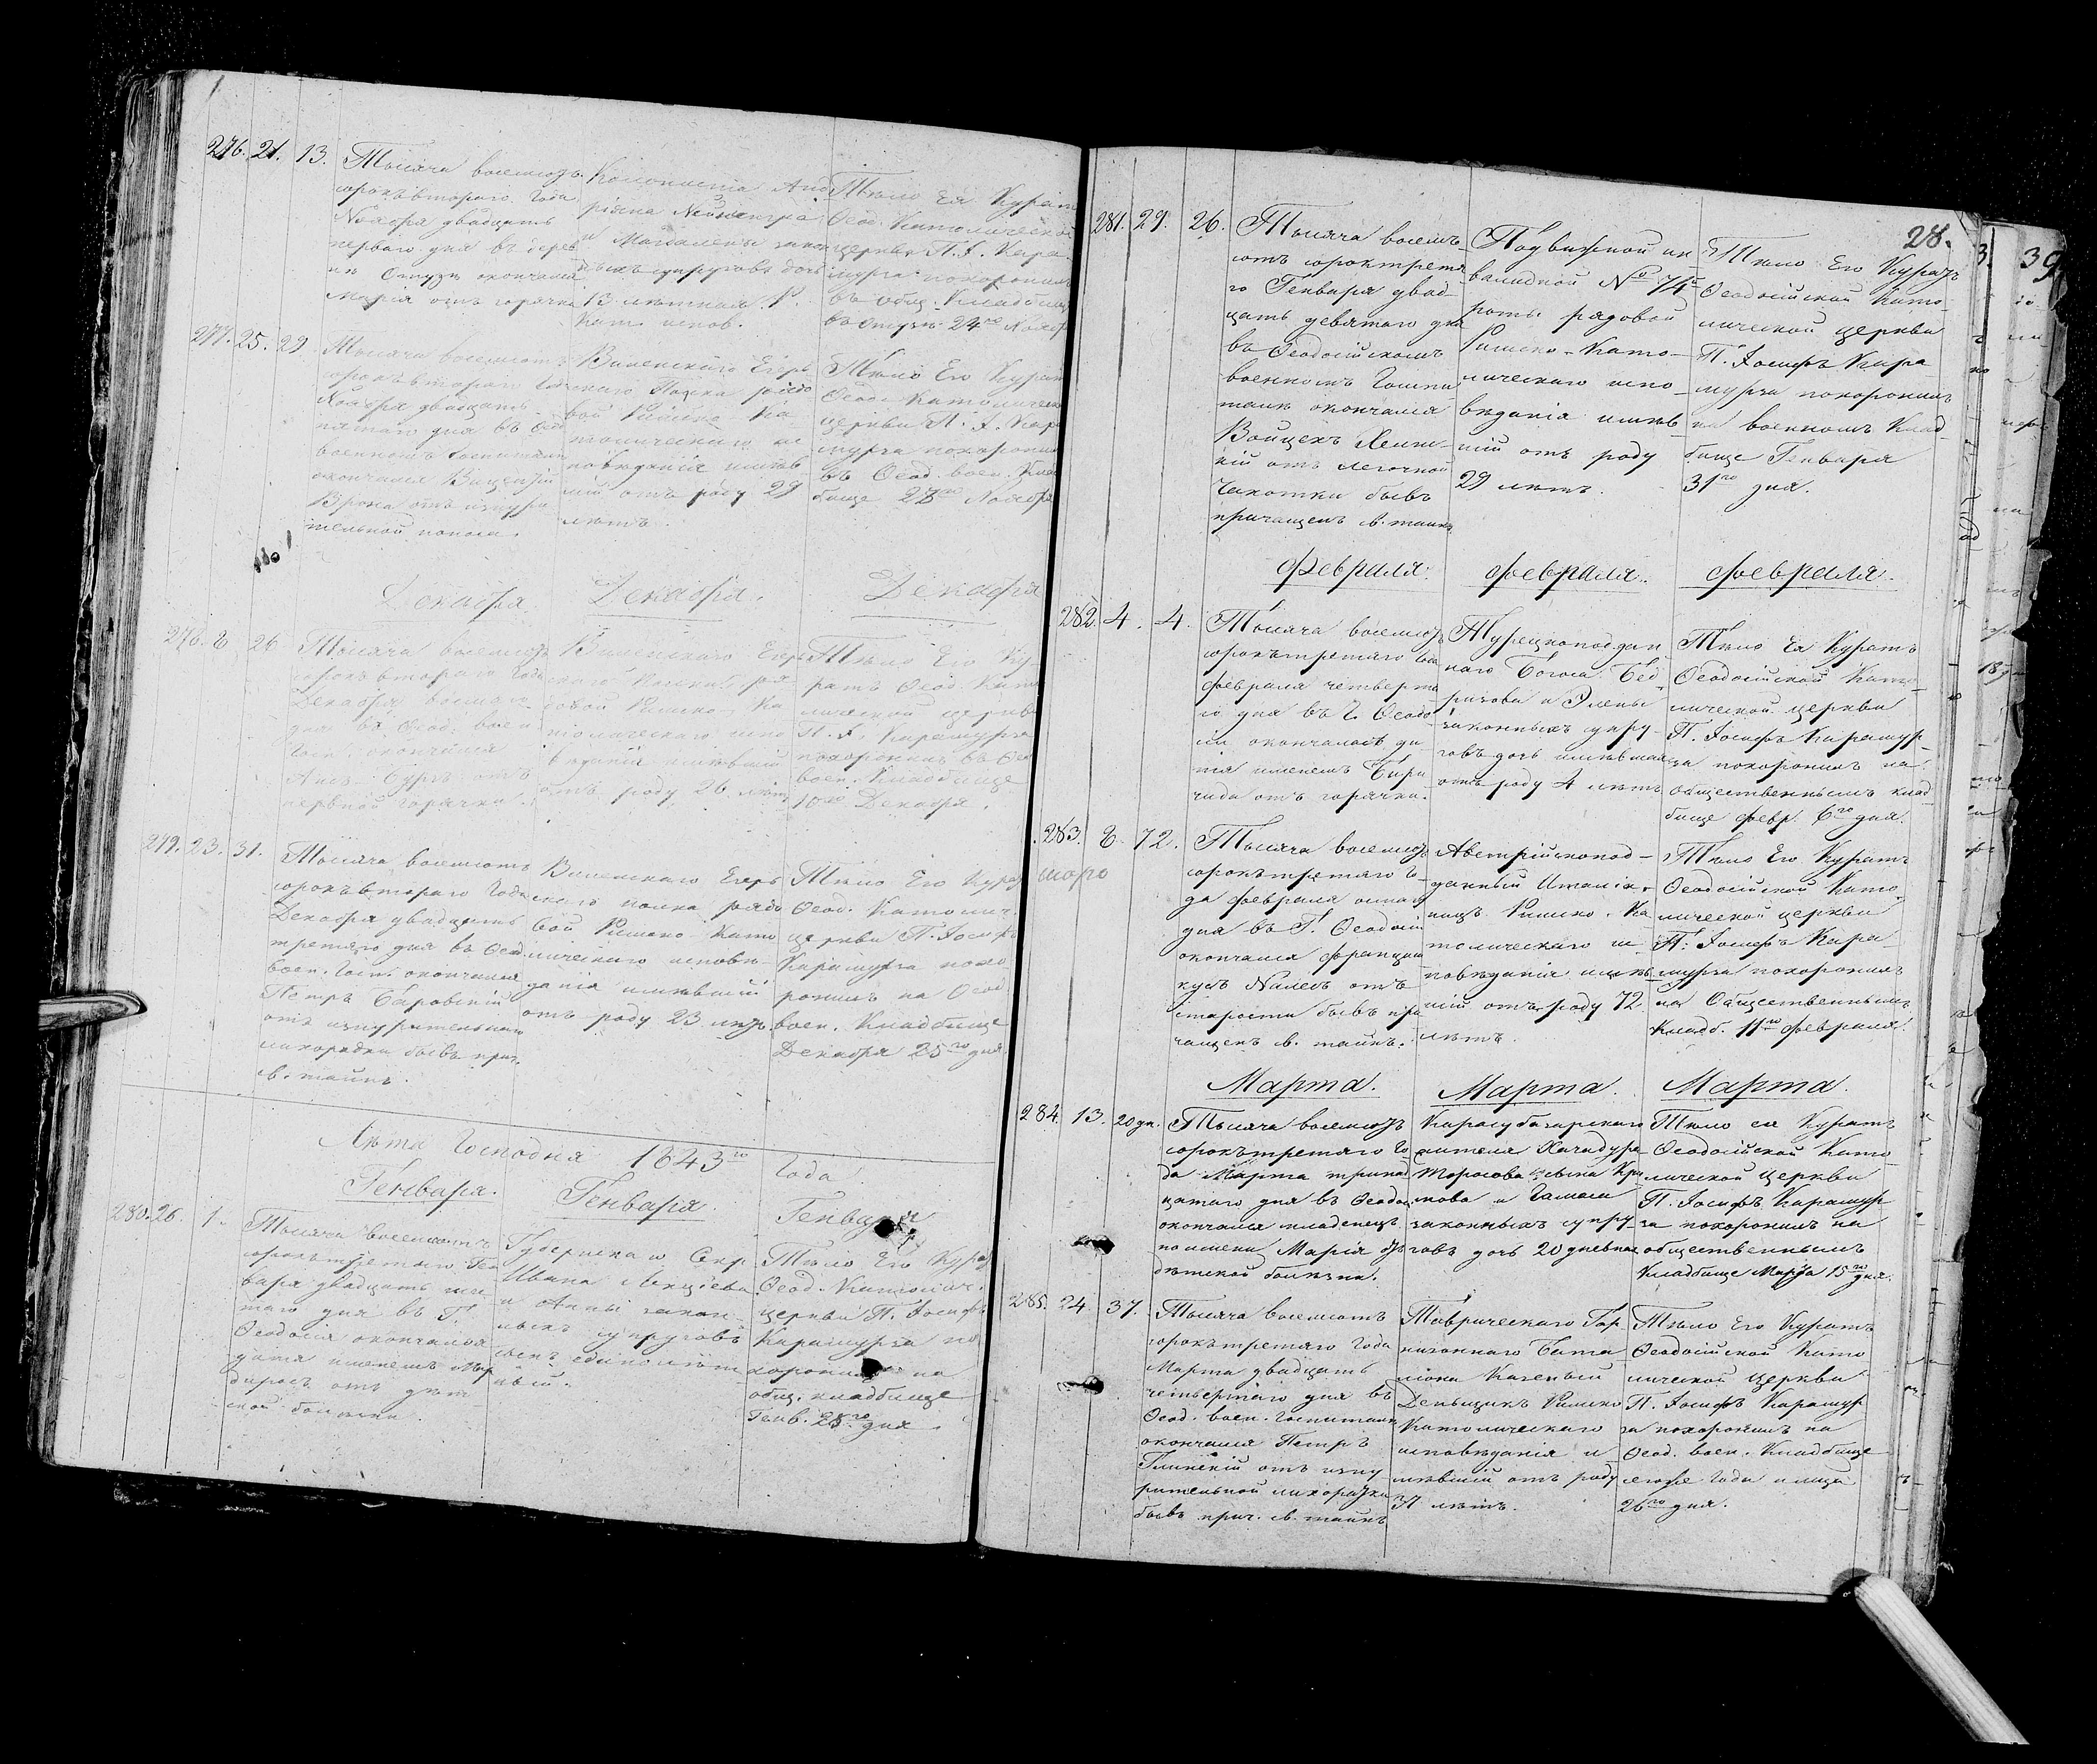 276. 21. 13.
Тысяча восемсотъ
сорокъ втораго Года
Ноября двадцать
перваго дня въ дерев
нѣ Отузы окончалась
Марія отъ горячки
Колониста Анд
ріяна
и Магдалены закон
ныхъ супруговъ дочь
13 лѣтная Р.
Кат. испов.
Тѣло Ея Куратъ
Ѳеод. Католической
церкви П. І. Кара
мурза похоронилъ
въ общ. Кладбищѣ
въ Отузы 24го Ноябр
277. 25. 29
Тысяча восемсотъ
сорокъ втораго Года
Ноября двадцать
пятаго дня въ Ѳеод
военномъ Госпиталѣ
окончался Викентій
Врона отъ изнури
тельной поноса.
Виленскаго Егер
скаго Полка рядо
вой Римско Ка
толическаго ис
повѣданія имѣв
шій отъ роду 29
лѣтъ.
Тѣло Его Куратъ
Ѳеод. Католическ
церкви П. І. Кара
мурза похоронилъ
въ Ѳеод. воен. Клад
бище 28го Ноября
Декабря.
Декабря.
Декабря
278. 8 26
Тысяча восемсотъ
сорокъ втораго Года
Декабря восьмаго
дня въ Ѳеод. воен
Гос. окончался
отъ
нервной горячки.
Виленскаго Егер
скаго Полка ря
довой Римско Ка
толическаго испо
вѣданія имѣвшій
отъ роду 26 лѣтъ
Тѣло Его Ку
ратъ Ѳеод. Като
лической церкви
П. І. Карамурза
похоронилъ въ Ѳео
воен. Кладбище
10го Декабря.
279. 23. 31.
Тысяча восемсотъ
сорокъ втораго Года
Декабря двадцать
третяго дня въ Ѳеод
воен. Госп. окончался
Петръ Баровскій
отъ изнурительной
лихорадки бывъ прич.
св. таинъ.
Виленскаго Егер
скаго полка рядо
вой Римско Като
лическаго исповѣ
данія имѣвшій
отъ роду 23 лѣтъ.
Тѣло Его Курат
Ѳеод. Католич.
церкви П. Іосифъ
Карамурза похо
ронилъ на Ѳеод
воен. Кладбище
Декабря 25го дня.
Лѣта Господня 1843го Года
Генваря.
Генваря.
Генваря
280. 26. 1.
Тысяча восемсотъ
сорокъ третяго Ген
варя двадцать шес
таго дня въ Г.
Ѳеодосіи окончался
дитя именемъ
отъ дѣт
ской болѣзни.
Губернскаго Секр
Ивана
и Анны закон
ныхъ супруговъ
сынъ единолѣт
ный.
Тѣло Его Курат
Ѳеод. Католич.
церкви П. Іосифъ
Карамурза по
хоронилъ на
общ. кладбище
Генв. 28го дня.
28.
39
281. 29. 26.
Тысяча восемъ
сотъ сороктретя
го Генваря двад
цать девятаго дня
въ Ѳеодосійскомъ
военномъ Гошпи
талѣ окончался
Войцехъ
кій отъ легочной
чахотки бывъ
причащенъ св. таинъ
Подвижной ин
валидной № 74й
роты рядовой
Римско-Като-
лическаго испо
вѣданія имѣв
шій отъ роду
29 лѣтъ.
Тѣло Его Куратъ
Ѳеодосійской Като-
лической церкви
П. Іосифъ Кара
мурза похоронилъ
на военномъ Клад
бище Генваря
31го дня.
Февраля.
Февраля.
Февраля.
282. 4. 4.
Тысяча восемсотъ
сорокътретяго Года
Февраля четверта
го дня въ Г. Ѳеодо
сіи окончалась ди
тя именемъ
отъ горячки.
Турецкоподдан
наго Богоса Бед
ризова и Элены
законныхъ супру
говъ дочь имѣвшая
отъ роду 4 лѣтъ
Тѣло Ея Куратъ
Ѳеодосійской Като-
лической церкви
П. Іосифъ Карамур-
за похоронилъ на
общественнымъ клад
бище февр. 6го дня.
283. 8. 72.
моро
Тысяча восемсотъ
сорокътретяго Го
да Февраля осмаго
дня въ Г. Ѳеодосіи
окончался Францис
кусъ Налевъ отъ
старости бывъ при
чащенъ св. таинъ.
Австрійскопод-
данный Италіа-
нецъ Римско-Ка
толическаго ис
повѣданія имѣв
шій отъ роду 72
лѣтъ.
Тѣло Его Куратъ
Ѳеодосійской Като
лической церкви
П. Іосифъ Кара-
мурза похоронилъ
на Общественнымъ
Кладб. 11го Февраля.
Марта.
Марта.
Марта.
284. 13. 20 дн.
Тысяча восемсотъ
сорокътретяго Го
да Марта тринад
цатаго дня въ Ѳеодо
окончался младенецъ
по имени Марія отъ
дѣтской болѣзни.
Карасубазарскаго
жителя Хачадура
Торосова сына Кри
мова и
законныхъ супру
говъ дочь 20 дневная
Тѣло ея Куратъ
Ѳеодосійской Като
лической церкви
П. Іосифъ Карамур
за похоронилъ на
общественнымъ
Кладбище Марта 15го дня.
285. 24. 37.
Тысяча восемсотъ
сорокътретяго Года
Марта двадцать
четвертаго дня въ
Ѳеод. воен. Госпиталѣ
окончался Петръ
Глинскій отъ изну
рительной лихорадки
бывъ прич. св. таинъ
Таврическаго Гар
низоннаго Бата
ліона Казеный
Деньщикъ Римско
Католическаго
исповѣданія и
мѣвшій отъ роду
37 лѣтъ.
Тѣло Его Куратъ
Ѳеодосійской Като
лической церкви
П. Іосифъ Карамур
за похоронилъ на
Ѳеод. воен. Кладбище
сегоже Года и мѣца
26го дня.